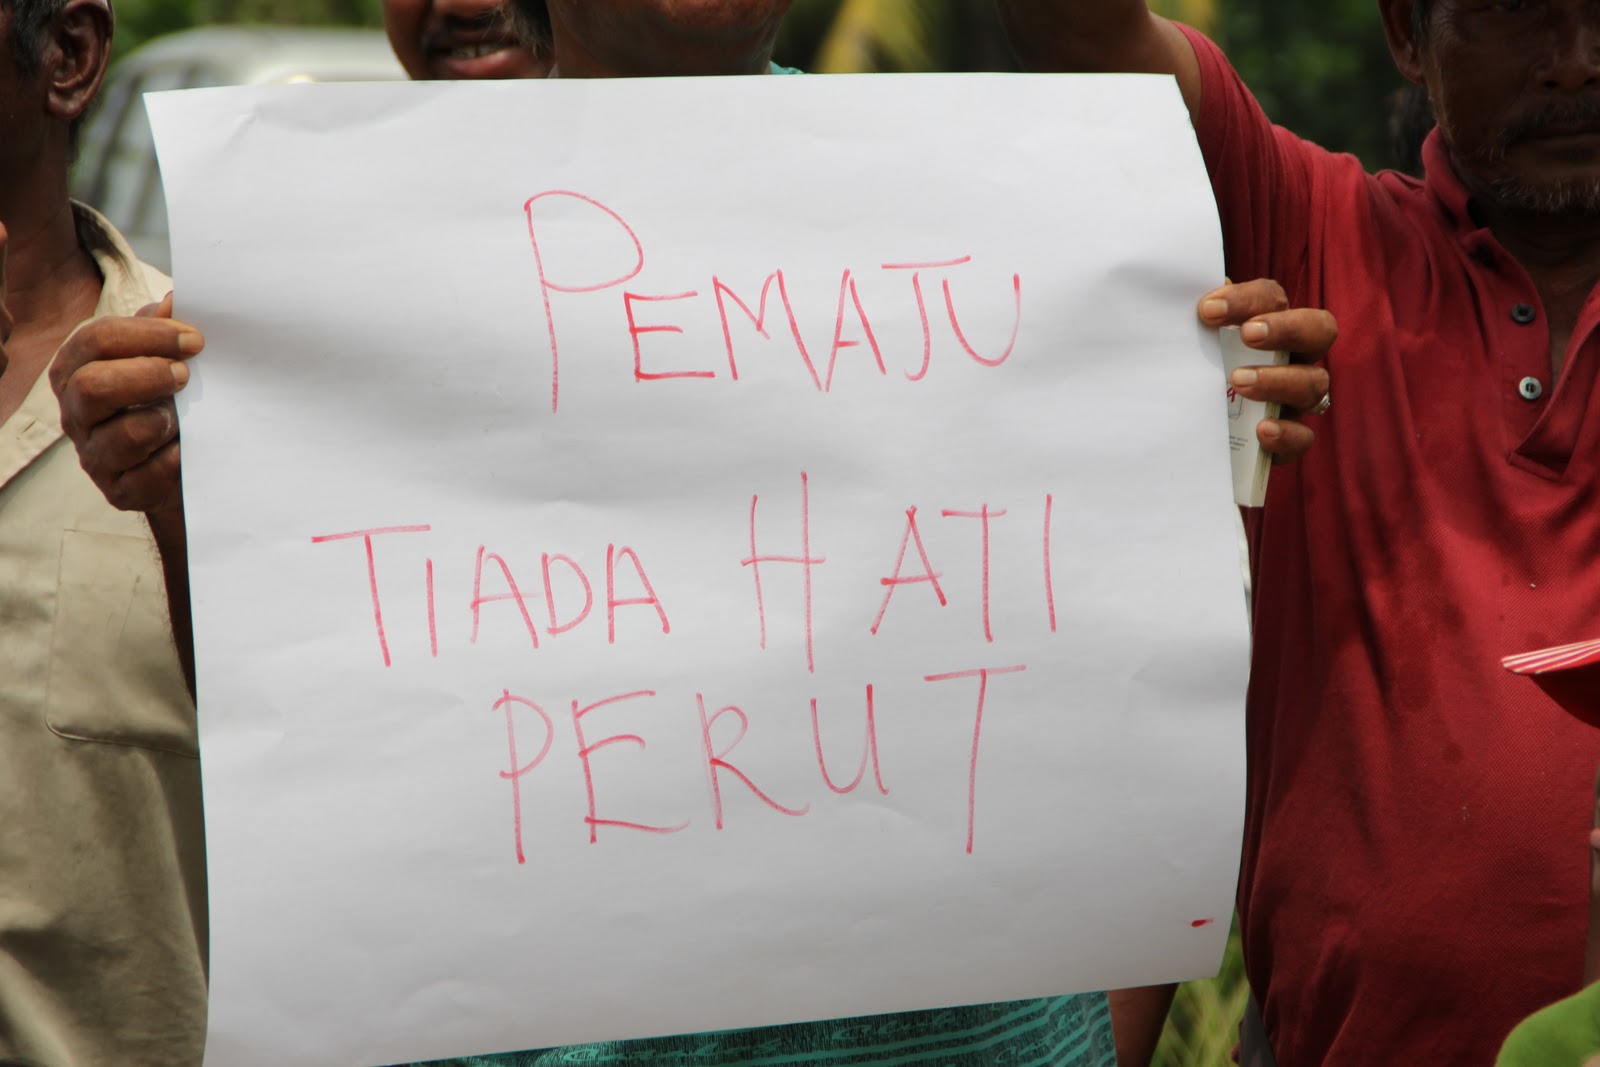 PEMAJU
TIADA HATI
PERUT